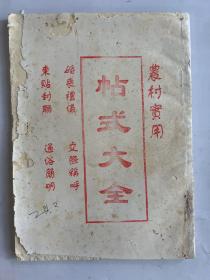 農村實用
帖式大全
婚喪禮儀 交際稱呼
柬貼对聯 通俗簡明